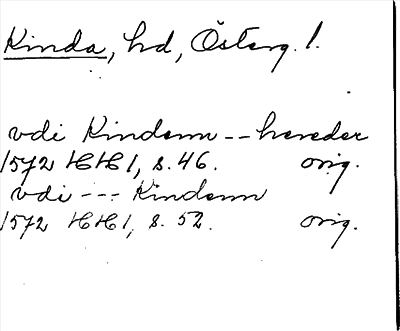 Kinda, hd, Österg. l.
vdi Kindenn -- hereder
1572 HH 1, s. 46. orig.
vdi --- Kindenn
1572 HH 1, s. 52. orig.